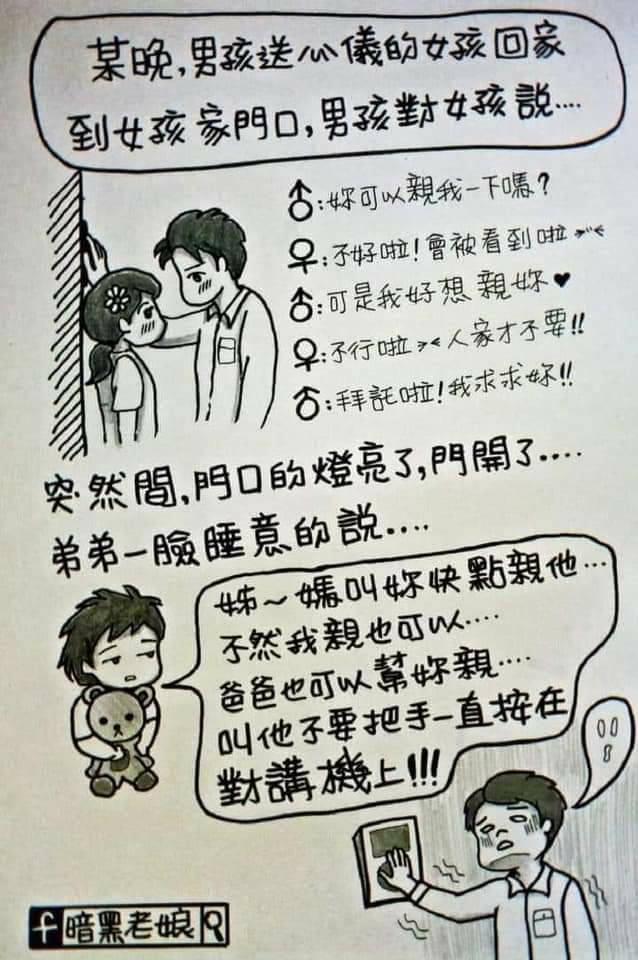 某晚，男孩送心儀的女孩回家
到女孩家門口，男孩對女孩說....
♂：妳可以親我一下嗎？
♀：不好啦！會被看到啦><
♂：可是我好想親妳♥
♀：不行啦><人家才不要！！
♂：拜託啦！我求求妳！！
突然間，門口的燈亮了，門開了....
弟弟一臉睡意的說....
姊～媽叫妳快點親他...
不然我親也可以....
爸爸也可以幫妳親....
叫他不要把手一直按在
對講機上！！！
！！！
f 暗黑老娘